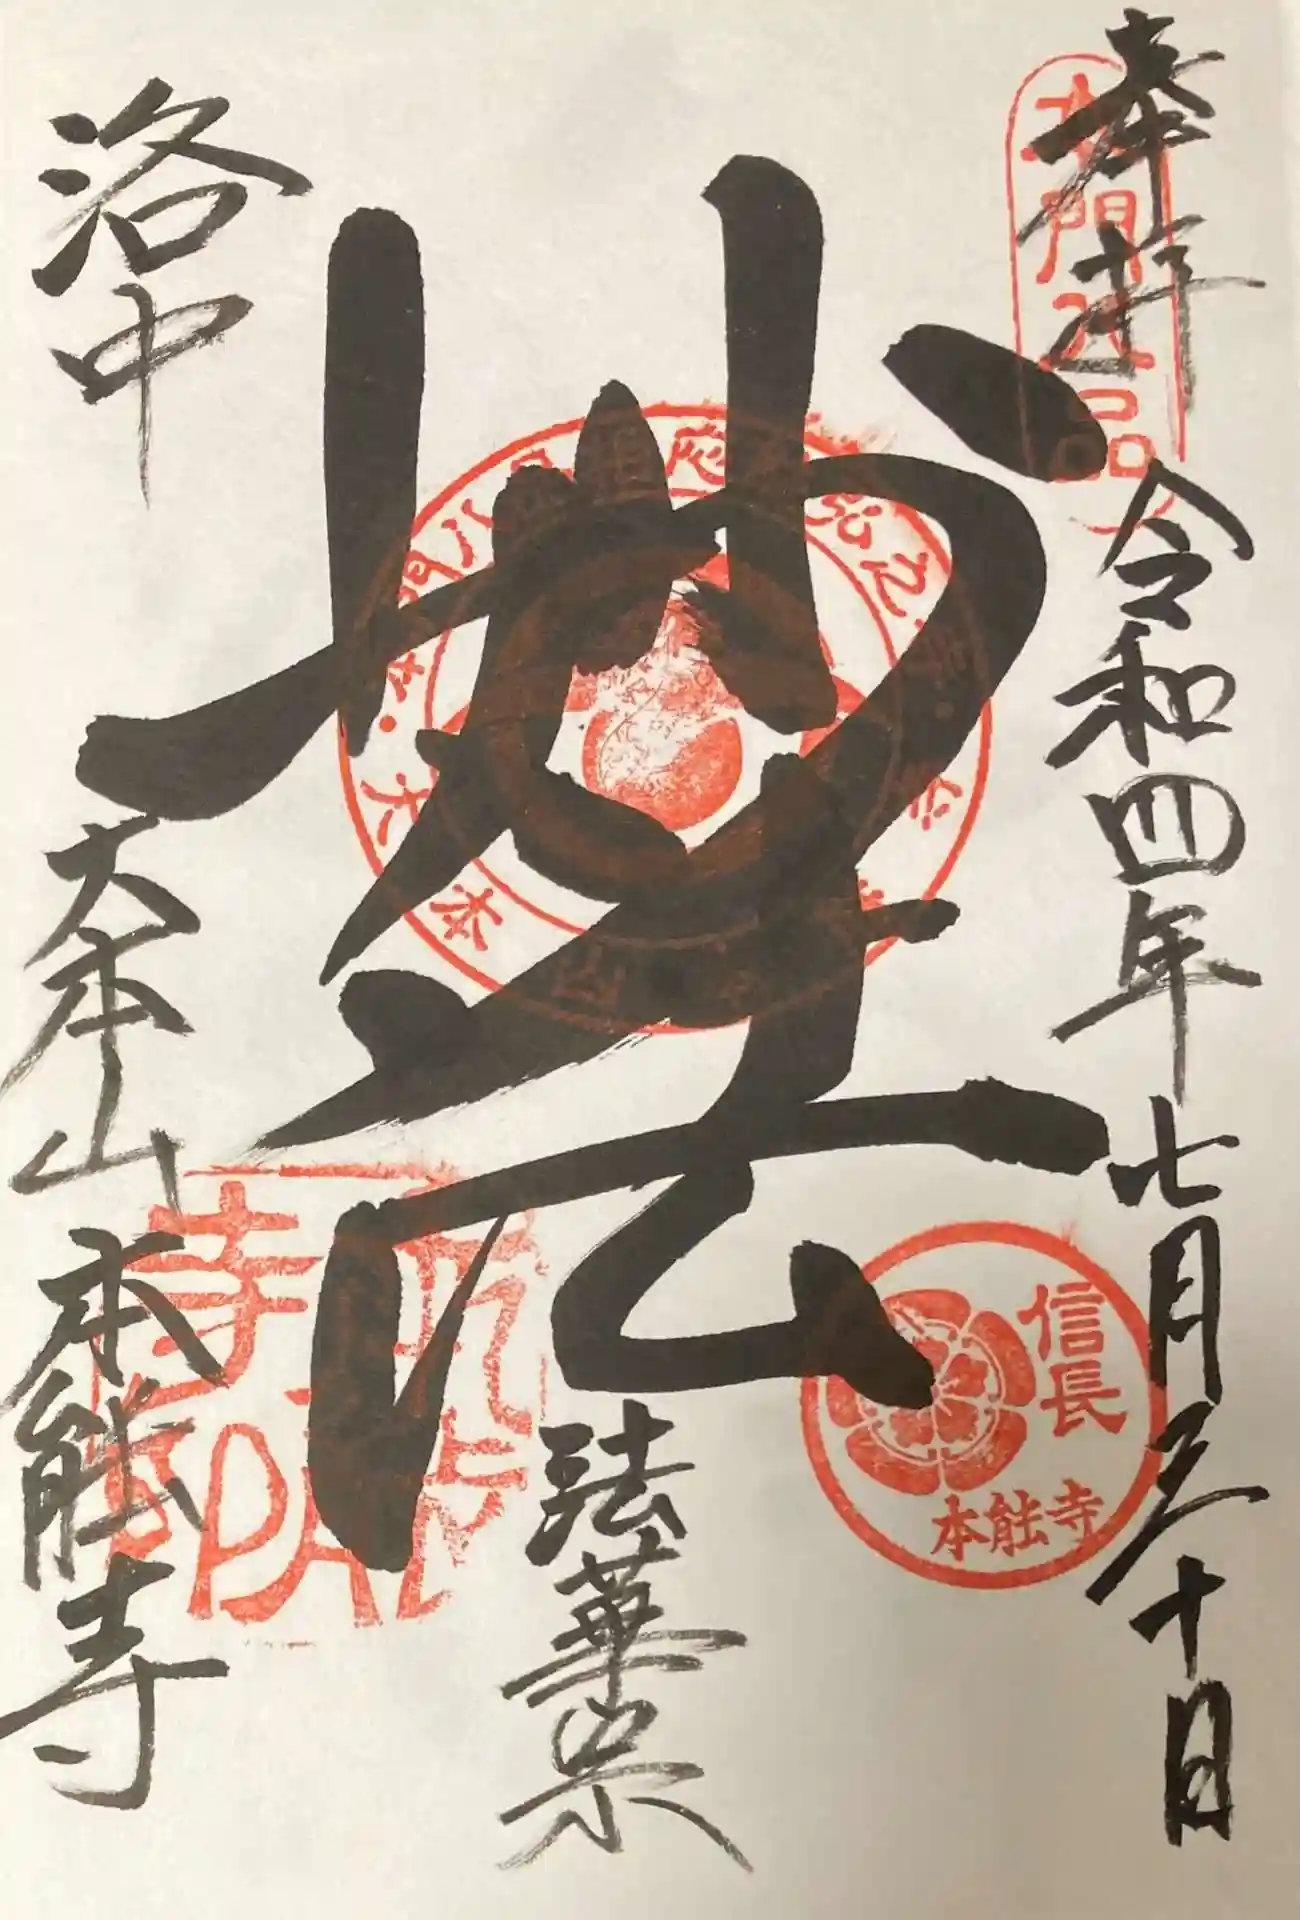 奉拝
本門八品
令和四年七月三十日
妙法
法華宗
信長
本能寺
洛中
大本山
本能寺